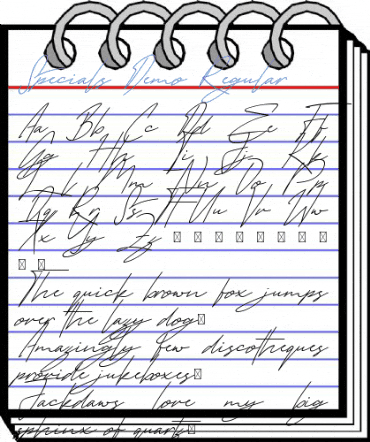 Specials Demo Regular
Aa Bb Cc Dd Ee Ff
Gg Hh Ii Jj Kk
Ll Mm Nn Oo Pp
Qq Rr Ss Tt Uu Vv Ww
Xx Yy Zz
The quick brown fox jumps
over the lazy dog
Amazingly few discotheques
provide jukeboxes
Jackdaws love my big
sphinx of quartz